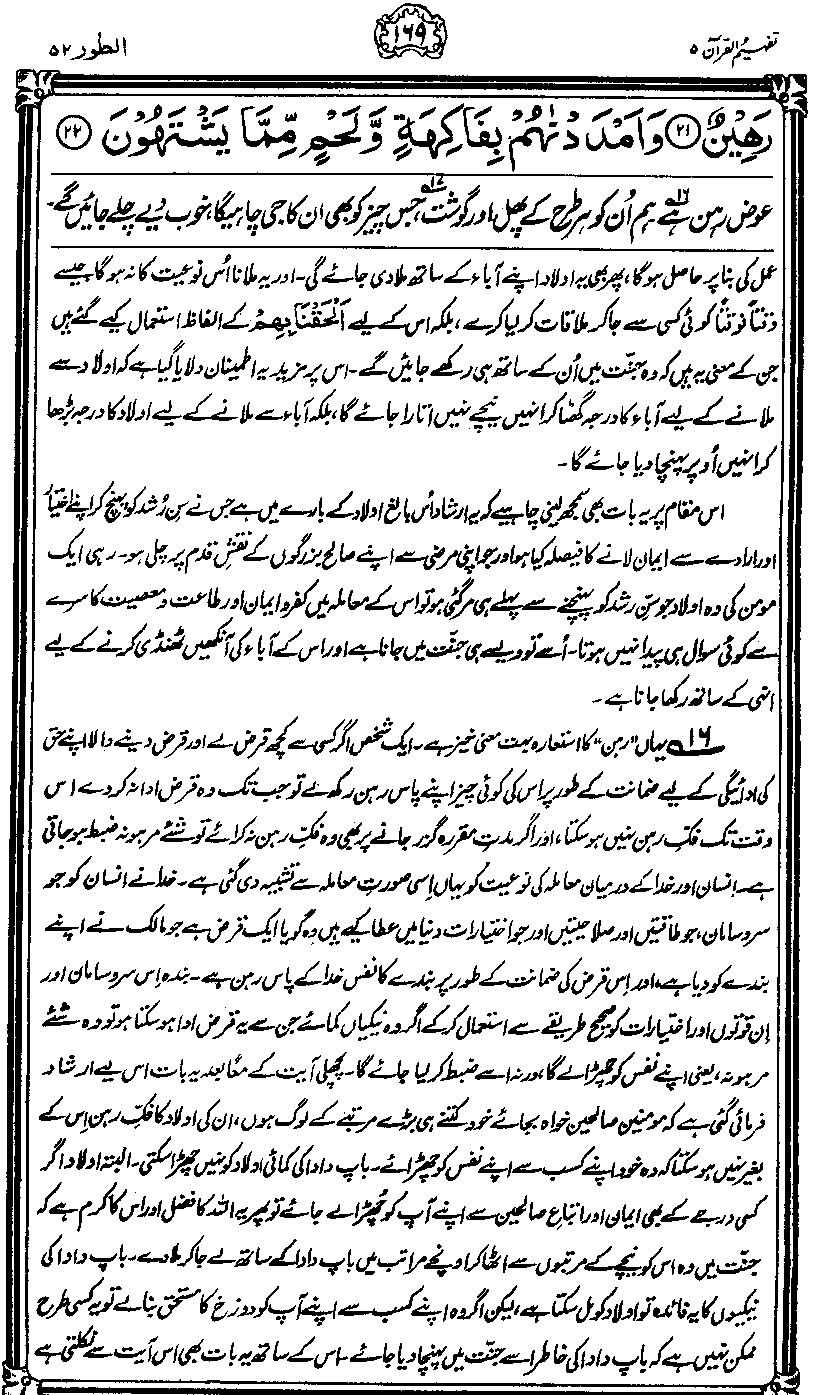 تفہیم القرآن ۵
۱۶۹
الطور ۵۲
رَهِيْنٌ ﴿۲۱﴾ وَاَمْدَدْنٰهُمْ بِفَاكِهَةٍ وَّلَحْمٍ مِّمَّا يَشْتَهُوْنَ ﴿۲۲﴾
عوض رہن ہے۔۱۶ ہم اُن کو ہر طرح کے پھل اور گوشت،۱۷ جس چیز کو بھی ان کا جی چاہیگا، خوب دیے چلے جائیں گے۔
عمل کی بنا پر حاصل ہوگا، پھر بھی یہ اولاد اپنے آباء کے ساتھ ملا دی جائے گی۔ اور یہ ملانا اُس نوعیت کا نہ ہوگا جیسے
وقتاً فوقتاً کوئی کسی سے جا کر ملاقات کر لیا کرے، بلکہ اس کے لیے اَلْحَقْنَا بِهِمْ کے الفاظ استعمال کیے گئے ہیں
جن کے معنی یہ ہیں کہ وہ جنّت میں اُن کے ساتھ ہی رکھے جائیں گے۔ اس پر مزید یہ اطمینان دلایا گیا ہے کہ اولاد سے
ملانے کے لیے آباء کا درجہ گھٹا کر انہیں نیچے نہیں اتارا جائے گا، بلکہ آباء سے ملانے کے لیے اولاد کا درجہ بڑھا
کر انہیں اُوپر پہنچا دیا جائے گا۔
اس مقام پر یہ بات بھی سمجھ لینی چاہیے کہ یہ ارشاد اُس بالغ اولاد کے بارے میں ہے جس نے سِن رُشد کو پہنچ کر اپنے اختیار
اور ارادے سے ایمان لانے کا فیصلہ کیا ہو اور جو اپنی مرضی سے اپنے صالح بزرگوں کے نقشِ قدم پر چلی ہو۔ رہی ایک
مومن کی وہ اولاد جو سنِّ رشد کو پہنچنے سے پہلے ہی مر گئی ہو تو اس کے معاملہ میں کفر و ایمان اور طاعت و معصیت کا سرے
سے کوئی سوال ہی پیدا نہیں ہوتا۔ اُسے تو ویسے ہی جنّت میں جانا ہے اور اس کے آباء کی آنکھیں ٹھنڈی کرنے کے لیے
انہی کے ساتھ رکھا جانا ہے۔
۱۶ یہاں "رہن" کا استعارہ بہت معنی خیز ہے۔ ایک شخص اگر کسی سے کچھ قرض لے اور قرض دینے والا اپنے حق
کی ادائیگی کے لیے ضمانت کے طور پر اس کی کوئی چیز اپنے پاس رہن رکھ لے تو جب تک وہ قرض ادا نہ کر دے اس
وقت تک فکِّ رہن نہیں ہو سکتا، اور اگر مدتِ مقررہ گزر جانے پر بھی وہ فکِّ رہن نہ کرائے تو شئے مرہونہ ضبط ہو جاتی
ہے۔ انسان اور خدا کے درمیان معاملہ کی نوعیت کو یہاں اِسی صورتِ معاملہ سے تشبیہ دی گئی ہے۔ خدا نے انسان کو جو
سر و سامان، جو طاقتیں اور صلاحیتیں اور جو اختیارات دنیا میں عطا کیے ہیں وہ گویا ایک قرض ہے جو مالک نے اپنے
بندے کو دیا ہے، اور اِس قرض کی ضمانت کے طور پر بندے کا نفس خدا کے پاس رہن ہے۔ بندہ اِس سر و سامان اور
اِن قوتوں اور اختیارات کو صحیح طریقے سے استعمال کر کے اگر وہ نیکیاں کمائے جن سے یہ قرض ادا ہو سکتا ہو تو وہ شئے
مرہونہ، یعنی اپنے نفس کو چھڑا لے گا، ورنہ اسے ضبط کر لیا جائے گا۔ پچھلی آیت کے معًا بعد یہ بات اس لیے ارشاد
فرمائی گئی ہے کہ مومنین صالحین خواہ بجائے خود کتنے ہی بڑے مرتبے کے لوگ ہوں، ان کی اولاد کا فکِّ رہن اِس کے
بغیر نہیں ہو سکتا کہ وہ خود اپنے کسب سے اپنے نفس کو چھڑائے۔ باپ دادا کی کمائی اولاد کو نہیں چھڑا سکتی۔ البتہ اولاد اگر
کسی درجے کے بھی ایمان اور اتباع صالحین سے اپنے آپ کو چُھڑا لے جائے تو پھر یہ اللہ کا فضل اور اس کا کرم ہے کہ
جنّت میں وہ اس کو نیچے کے مرتبوں سے اٹھا کر اونچے مراتب میں باپ دادا کے ساتھ لے جا کر ملا دے۔ باپ دادا کی
نیکیوں کا یہ فائدہ تو اولاد کو مل سکتا ہے، لیکن اگر وہ اپنے کسب سے اپنے آپ کو دوزخ کا مستحق بنا لے تو یہ کسی طرح
ممکن نہیں ہے کہ باپ دادا کی خاطر اسے جنّت میں پہنچا دیا جائے۔ اس کے ساتھ یہ بات بھی اس آیت سے نکلتی ہے